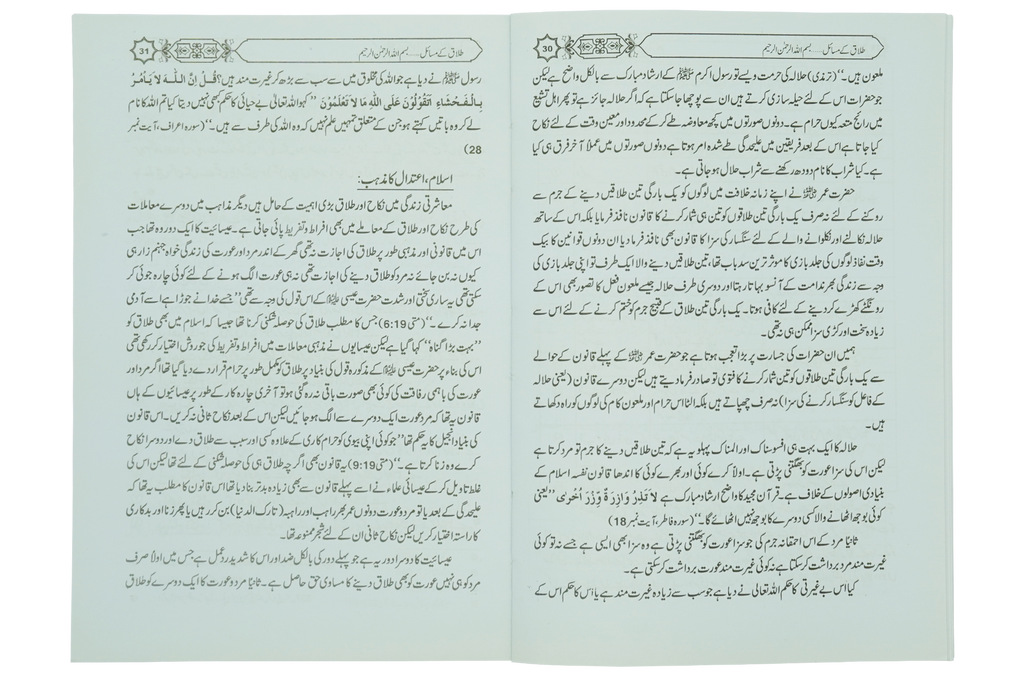 طلاق کے مسائل.....بسم اللہ الرحمٰن الرحیم
30
ملعون ہیں۔‘‘(ترمذی) حلالہ کی حرمت ویسے تو رسول اکرم ﷺ کے ارشاد مبارک سے بالکل واضح ہے لیکن
جو حضرات اس کے لئے حیلہ سازی کرتے ہیں ان سے پوچھا جا سکتا ہے کہ اگر حلالہ جائز ہے تو پھر اہل تشیع
میں رائج متعہ کیوں حرام ہے۔ دونوں صورتوں میں کچھ معاوضہ طے کر کے محدود اور معین وقت کے لئے نکاح
کیا جاتا ہے اس کے بعد فریقین میں علیحدگی طے شدہ امر ہوتا ہے دونوں صورتوں میں عملاً آخر فرق ہی کیا
ہے۔ کیا شراب کا نام دودھ رکھنے سے شراب حلال ہو جاتی ہے۔
حضرت عمر ؓ نے اپنے زمانہ خلافت میں لوگوں کو یک بارگی تین طلاقیں دینے کے جرم سے
روکنے کے لئے نہ صرف یک بارگی تین طلاقوں کو تین ہی شمار کرنے کا قانون نافذ فرمایا بلکہ اس کے ساتھ
حلالہ نکالنے اور نکلوانے والے کے لئے سنگسار کی سزا کا قانون بھی نافذ فرما دیا ان دونوں قوانین کا بیک
وقت نفاذ لوگوں کی جلد بازی کا موثر ترین سدباب تھا، تین طلاقیں دینے والا ایک طرف تو اپنی جلد بازی کی
وجہ سے زندگی بھر ندامت کے آنسو بہاتا رہتا اور دوسری طرف حلالہ جیسے ملعون فعل کا تصور بھی اس کے
رونگٹے کھڑے کر دینے کے لئے کافی ہوتا۔ یک بارگی تین طلاق کے قبیح جرم کو ختم کرنے کے لئے اس سے
زیادہ سخت اور کڑی سزا ممکن ہی نہ تھی۔
ہمیں ان حضرات کی جسارت پر بڑا تعجب ہوتا ہے جو حضرت عمر ؓ کے پہلے قانون کے حوالے
سے یک بارگی تین طلاقوں کو تین شمار کرنے کا فتویٰ تو صادر فرما دیتے ہیں لیکن دوسرے قانون (یعنی حلالہ
کے فاعل کو سنگسار کرنے کی سزا) نہ صرف چھپاتے ہیں بلکہ الٹا اس حرام اور ملعون کام کی لوگوں کو راہ دکھاتے
ہیں۔
حلالہ کا ایک بہت ہی افسوسناک اور المناک پہلو یہ ہے کہ تین طلاقیں دینے کا جرم تو مرد کرتا ہے
لیکن اس کی سزا عورت کو بھگتنی پڑتی ہے۔ اولاً کرے کوئی اور بھرے کوئی کا اندھا قانون نفسہ اسلام کے
بنیادی اصولوں کے خلاف ہے۔ قرآن مجید کا واضح ارشاد مبارک ہے لاَ تَذِرُ وَازِرَةٌ وِّزْرَ اُخْرٰى ’’یعنی
کوئی بوجھ اٹھانے والا کسی دوسرے کا بوجھ نہیں اٹھائے گا۔‘‘(سورہ فاطر، آیت نمبر 18)
ثانیاً مرد کے اس احمقانہ جرم کی جو سزا عورت کو بھگتنی پڑتی ہے وہ سزا بھی ایسی ہے جسے نہ تو کوئی
غیرت مند مرد برداشت کر سکتا ہے نہ کوئی غیرت مند عورت برداشت کر سکتی ہے۔
کیا اس بے غیرتی کا حکم اللہ تعالیٰ نے دیا ہے جو سب سے زیادہ غیرت مند ہے یا اس کا حکم اس کے
طلاق کے مسائل.....بسم اللہ الرحمٰن الرحیم
31
رسول ﷺ نے دیا ہے جو اللہ کی مخلوق میں سے سب سے بڑھ کر غیرت مند ہیں؟ قُلْ اِنَّ اللّٰهَ لاَ يَأْمُرُ
بِالْفَحْشَاءِ اَتَقُوْلُوْنَ عَلَى اللّٰهِ مَا لاَ تَعْلَمُوْنَ ’’کہو اللہ تعالیٰ بے حیائی کا حکم کبھی نہیں دیتا کیا تم اللہ کا نام
لے کر وہ باتیں کہتے ہو جن کے متعلق تمہیں علم نہیں کہ وہ اللہ کی طرف سے ہیں۔‘‘(سورہ اعراف، آیت نمبر
28)
اسلام، اعتدال کا مذہب:
معاشرتی زندگی میں نکاح اور طلاق بڑی اہمیت کے حامل ہیں دیگر مذاہب میں دوسرے معاملات
کی طرح نکاح اور طلاق کے معاملے میں بھی افراط و تفریط پائی جاتی ہے۔ عیسائیت کا ایک دور وہ تھا جب
اس میں قانونی اور مذہبی طور پر طلاق کی اجازت نہ تھی گھر کے اندر مرد اور عورت کی زندگی خواہ جہنم زار ہی
کیوں نہ بن جائے نہ مرد کو طلاق دینے کی اجازت تھی نہ ہی عورت الگ ہونے کے لئے کوئی چارہ جوئی کر
سکتی تھی یہ ساری سختی اور شدت حضرت عیسیٰ ؑ کے اس قول کی وجہ سے تھی ’’جسے خدا نے جوڑا ہے اسے آدمی
جدا نہ کرے۔‘‘(متی 6:19) جس کا مطلب طلاق کی حوصلہ شکنی کرنا تھا جیسا کہ اسلام میں بھی طلاق کو
’’بہت بڑا گناہ‘‘ کہا گیا ہے لیکن عیسائیوں نے مذہبی معاملات میں افراط و تفریط کی جو روش اختیار کر رکھی تھی
اس کی بناء پر حضرت عیسیٰ ؑ کے مذکورہ قول کی بنیاد پر طلاق کو مکمل طور پر حرام قرار دے دیا گیا تھا اگر مرد اور
عورت کی باہمی رفاقت کی کوئی بھی صورت باقی نہ رہ گئی ہو تو آخری چارہ کار کے طور پر عیسائیوں کے ہاں
قانون یہ تھا کہ مرد عورت ایک دوسرے سے الگ ہو جائیں لیکن اس کے بعد نکاح ثانی نہ کریں۔ اس قانون
کی بنیاد انجیل کا یہ حکم تھا ’’جو کوئی اپنی بیوی کو حرام کاری کے علاوہ کسی اور سبب سے طلاق دے اور دوسرا نکاح
کرے وہ زنا کرتا ہے۔‘‘(متی 9:19) یہ قانون بھی اگرچہ طلاق ہی کی حوصلہ شکنی کے لئے تھا لیکن اس کی
غلط تاویل کر کے عیسائی علماء نے اسے پہلے قانون سے بھی زیادہ بدتر بنا دیا تھا اس قانون کا مطلب یہ تھا کہ
علیحدگی کے بعد یا تو مرد و عورت دونوں عمر بھر راہب اور راہبہ (تارک الدنیا) بن کر رہیں یا پھر زنا اور بدکاری
کا راستہ اختیار کریں لیکن نکاح ثانی ان کے لئے شجر ممنوعہ تھا۔
عیسائیت کا دوسرا دور یہ ہے جو پہلے دور کی بالکل ضد اور اس کا شدید رد عمل ہے جس میں اولاً صرف
مرد کو ہی نہیں عورت کو بھی طلاق دینے کا مساوی حق حاصل ہے۔ ثانیاً مرد و عورت کا ایک دوسرے کو طلاق